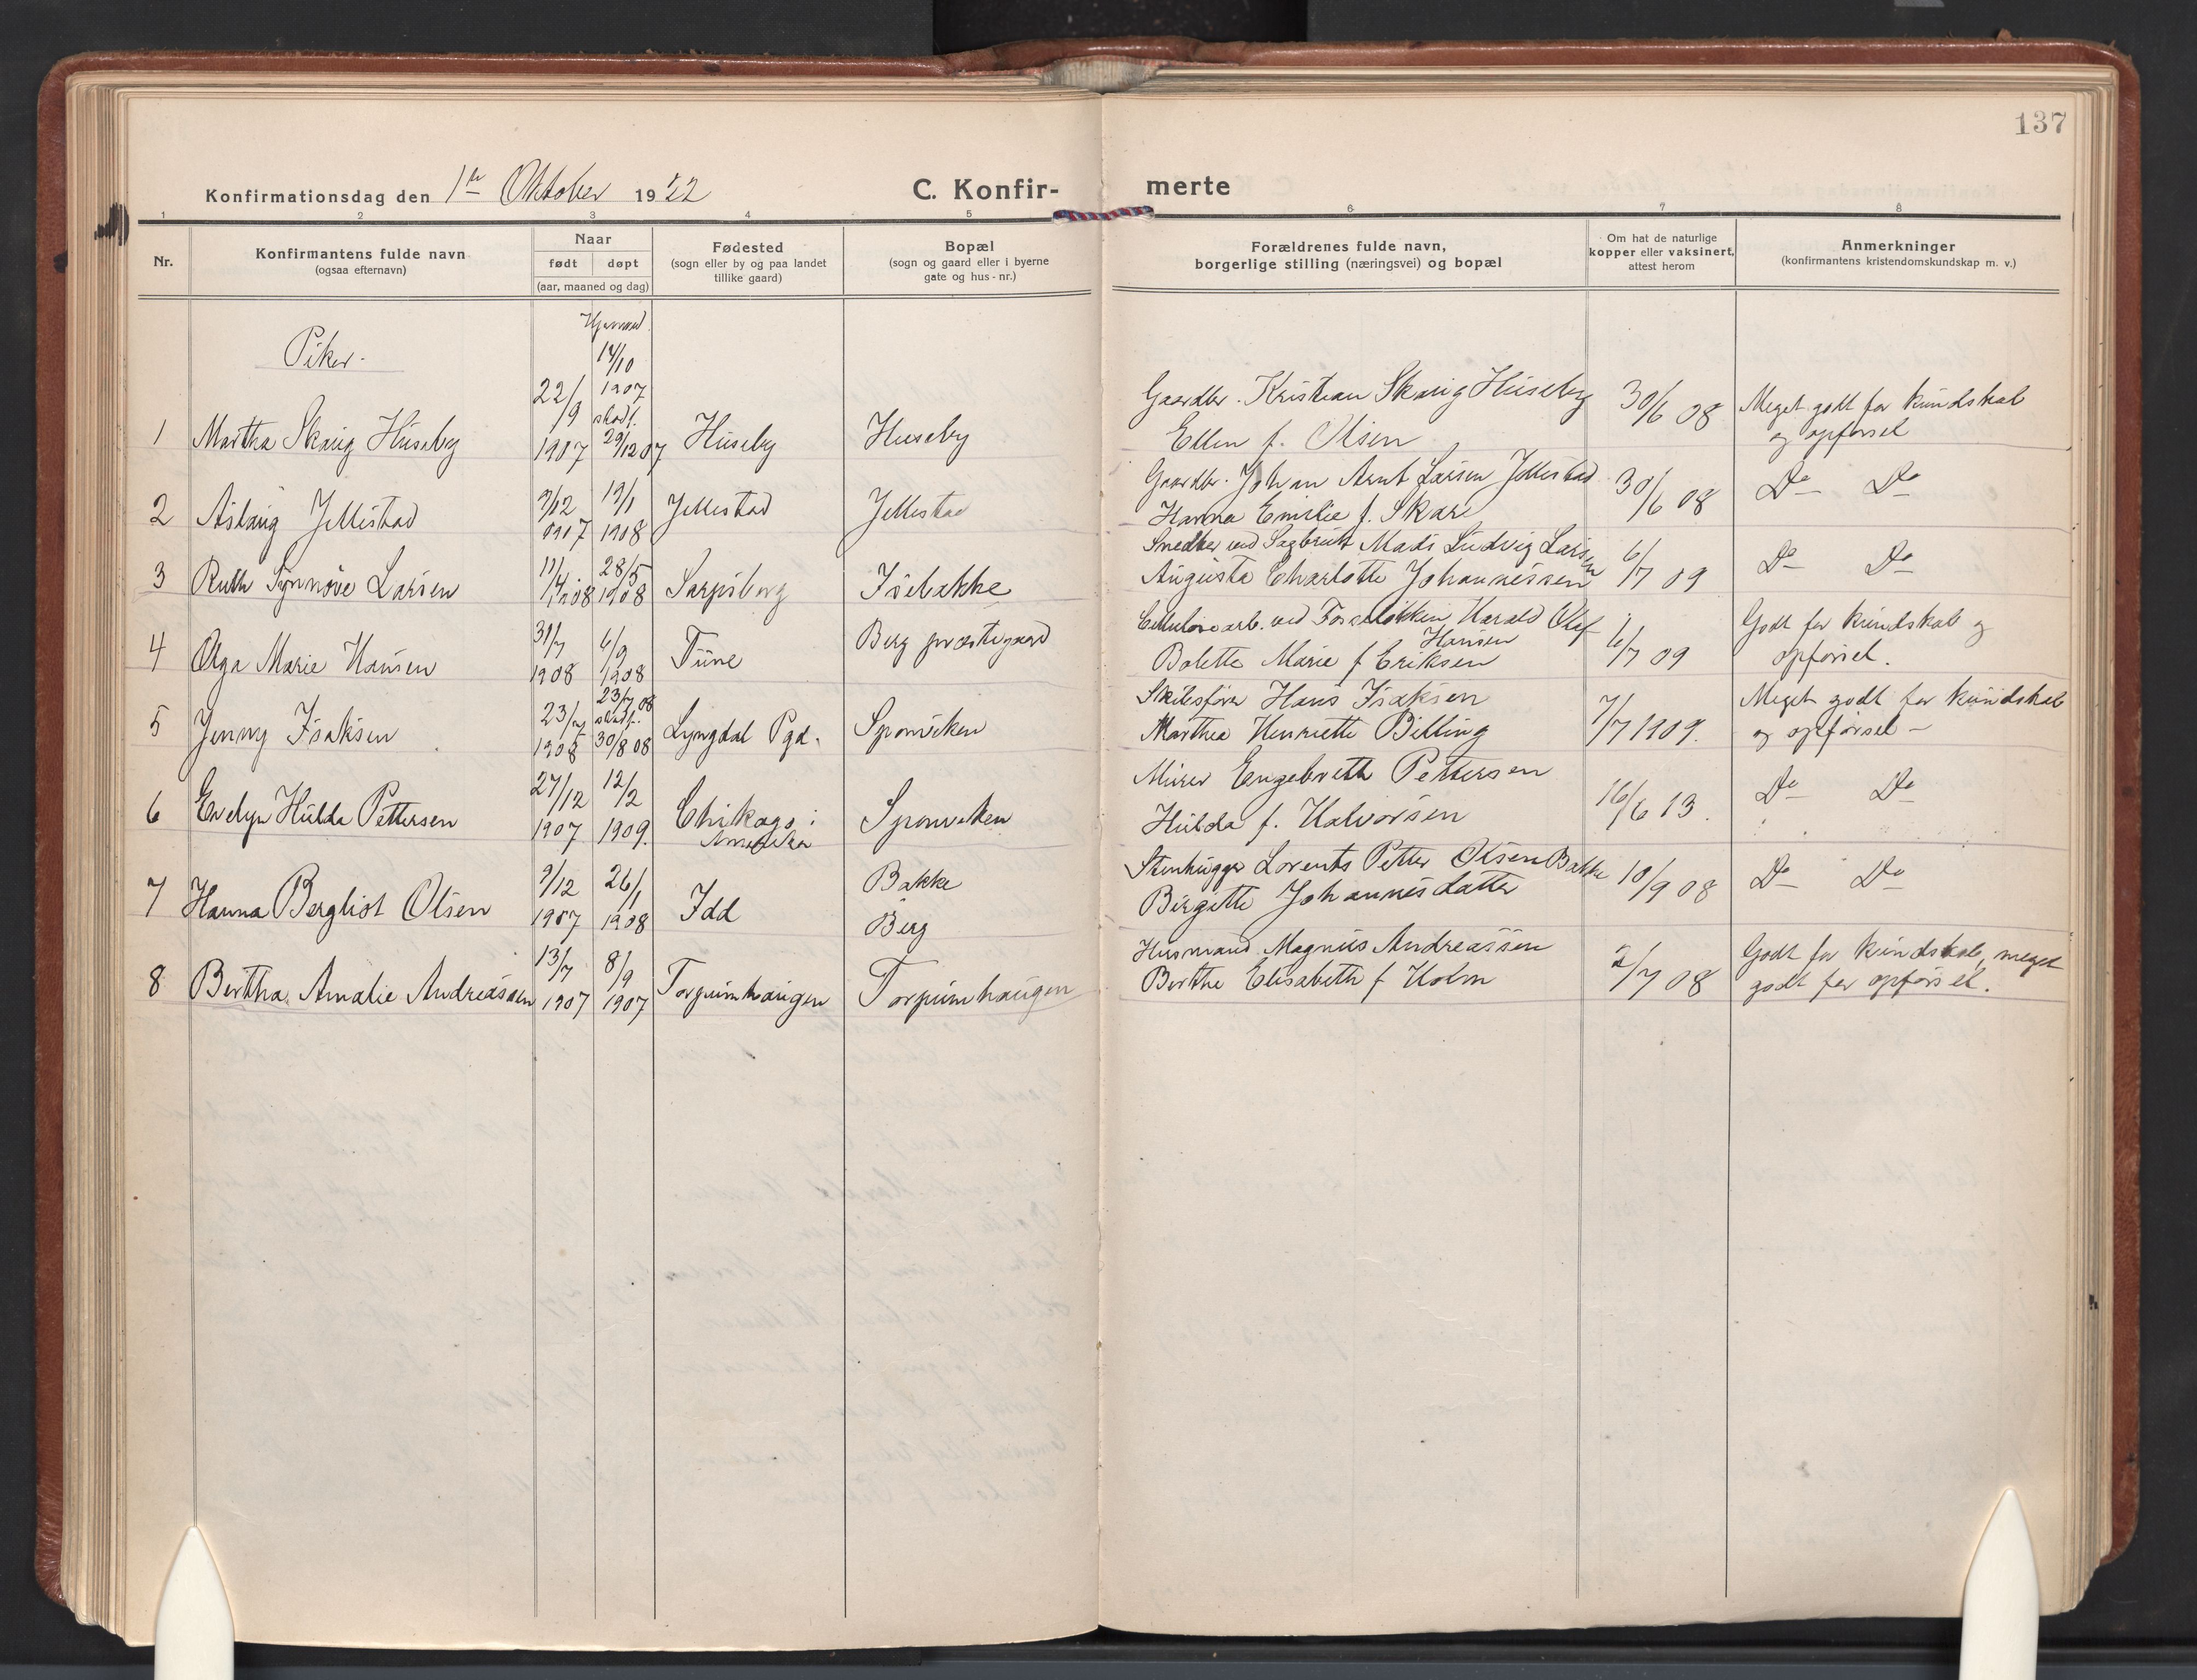 137
Konfirmationsdag den 1ste Oktober 1922
C. Konfir-
merte
1 2 3 4 5 6 7 8
Nr.
Konfirmantens fulde navn
(ogsaa efternavn)
Naar
født døpt
(aar, maaned og dag)
Fødested
(sogn eller by og paa landet
tillike gaard)
Bopæl
(sogn og gaard eller i byerne
gate og hus-nr.)
Forældrenes fulde navn,
borgerlige stilling (næringsvei) og bopæl
Om hat de naturlige
kopper eller vaksinert,
attest herom
Anmerkninger
(konfirmantens kristendomskundskap m. v.)
Piker.
Hjemmed.
14/10
1907
stadf.
1 Martha Skaug Huseby 22/9 1907 29/12 07 Huseby Huseby
Gaardbr. Kristian Skaug Huseby
Ellen f. Olsen
30/6 08
Meget godt for kundskab
og opførsel
2 Aslaug Jellestad 9/12 1907 13/1 1908 Jellestad Jellestad
Gaardbr. Johan Arnt Larsen Jellestad
Hanna Emilie f. Skare
30/6 08
Do Do
3 Ruth Synnøve Larsen 11/4 1908 28/5 1908 Sarpsborg Isebakke
Snedker ved Sagbruk Mads Ludvig Larsen
Augusta Charlotte Johannessen
6/7 09
Do Do
4 Olga Marie Hansen 31/7 1908 6/9 1908 Tune Berg præstegaard
Cellulosearb. ved Harald Olaf
Hansen
Bolette Marie f Eriksen
6/7 09
Godt for kundskab og
opførsel.
5 Jenny Isaksen 23/7 1908 23/7 08 stadf. 30/8 08 Lyngdal Pgd. Sponviken
Skibsfører Hans Isaksen
Marthea Henriette Billing
7/7 1909.
Meget godt for kundskab
og opførsel –
6 Evelyn Hulda Pettersen 27/12 1907 12/2 1909. Chikago i
Amerika
Sponviken
Murer Engebreth Pettersen
Hulda f. Halvorsen
16/6 13.
Do Do
7 Hanna Bergliot Olsen 9/12 1907 26/1 1908 Idd Bakke
Berg
Stenhugger Lorents Petter Olsen Bakke
Birgitte Johannesdatter
10/9 08
Do Do
8 Bertha Amalie Andreassen 13/7 1907 8/9 1907 Torpumhaugen Torpumhaugen
Husmand Magnus Andreassen
Berthe Elisabeth f Holm
2/7 08
Godt for kundskab, meget
godt for opførsel.